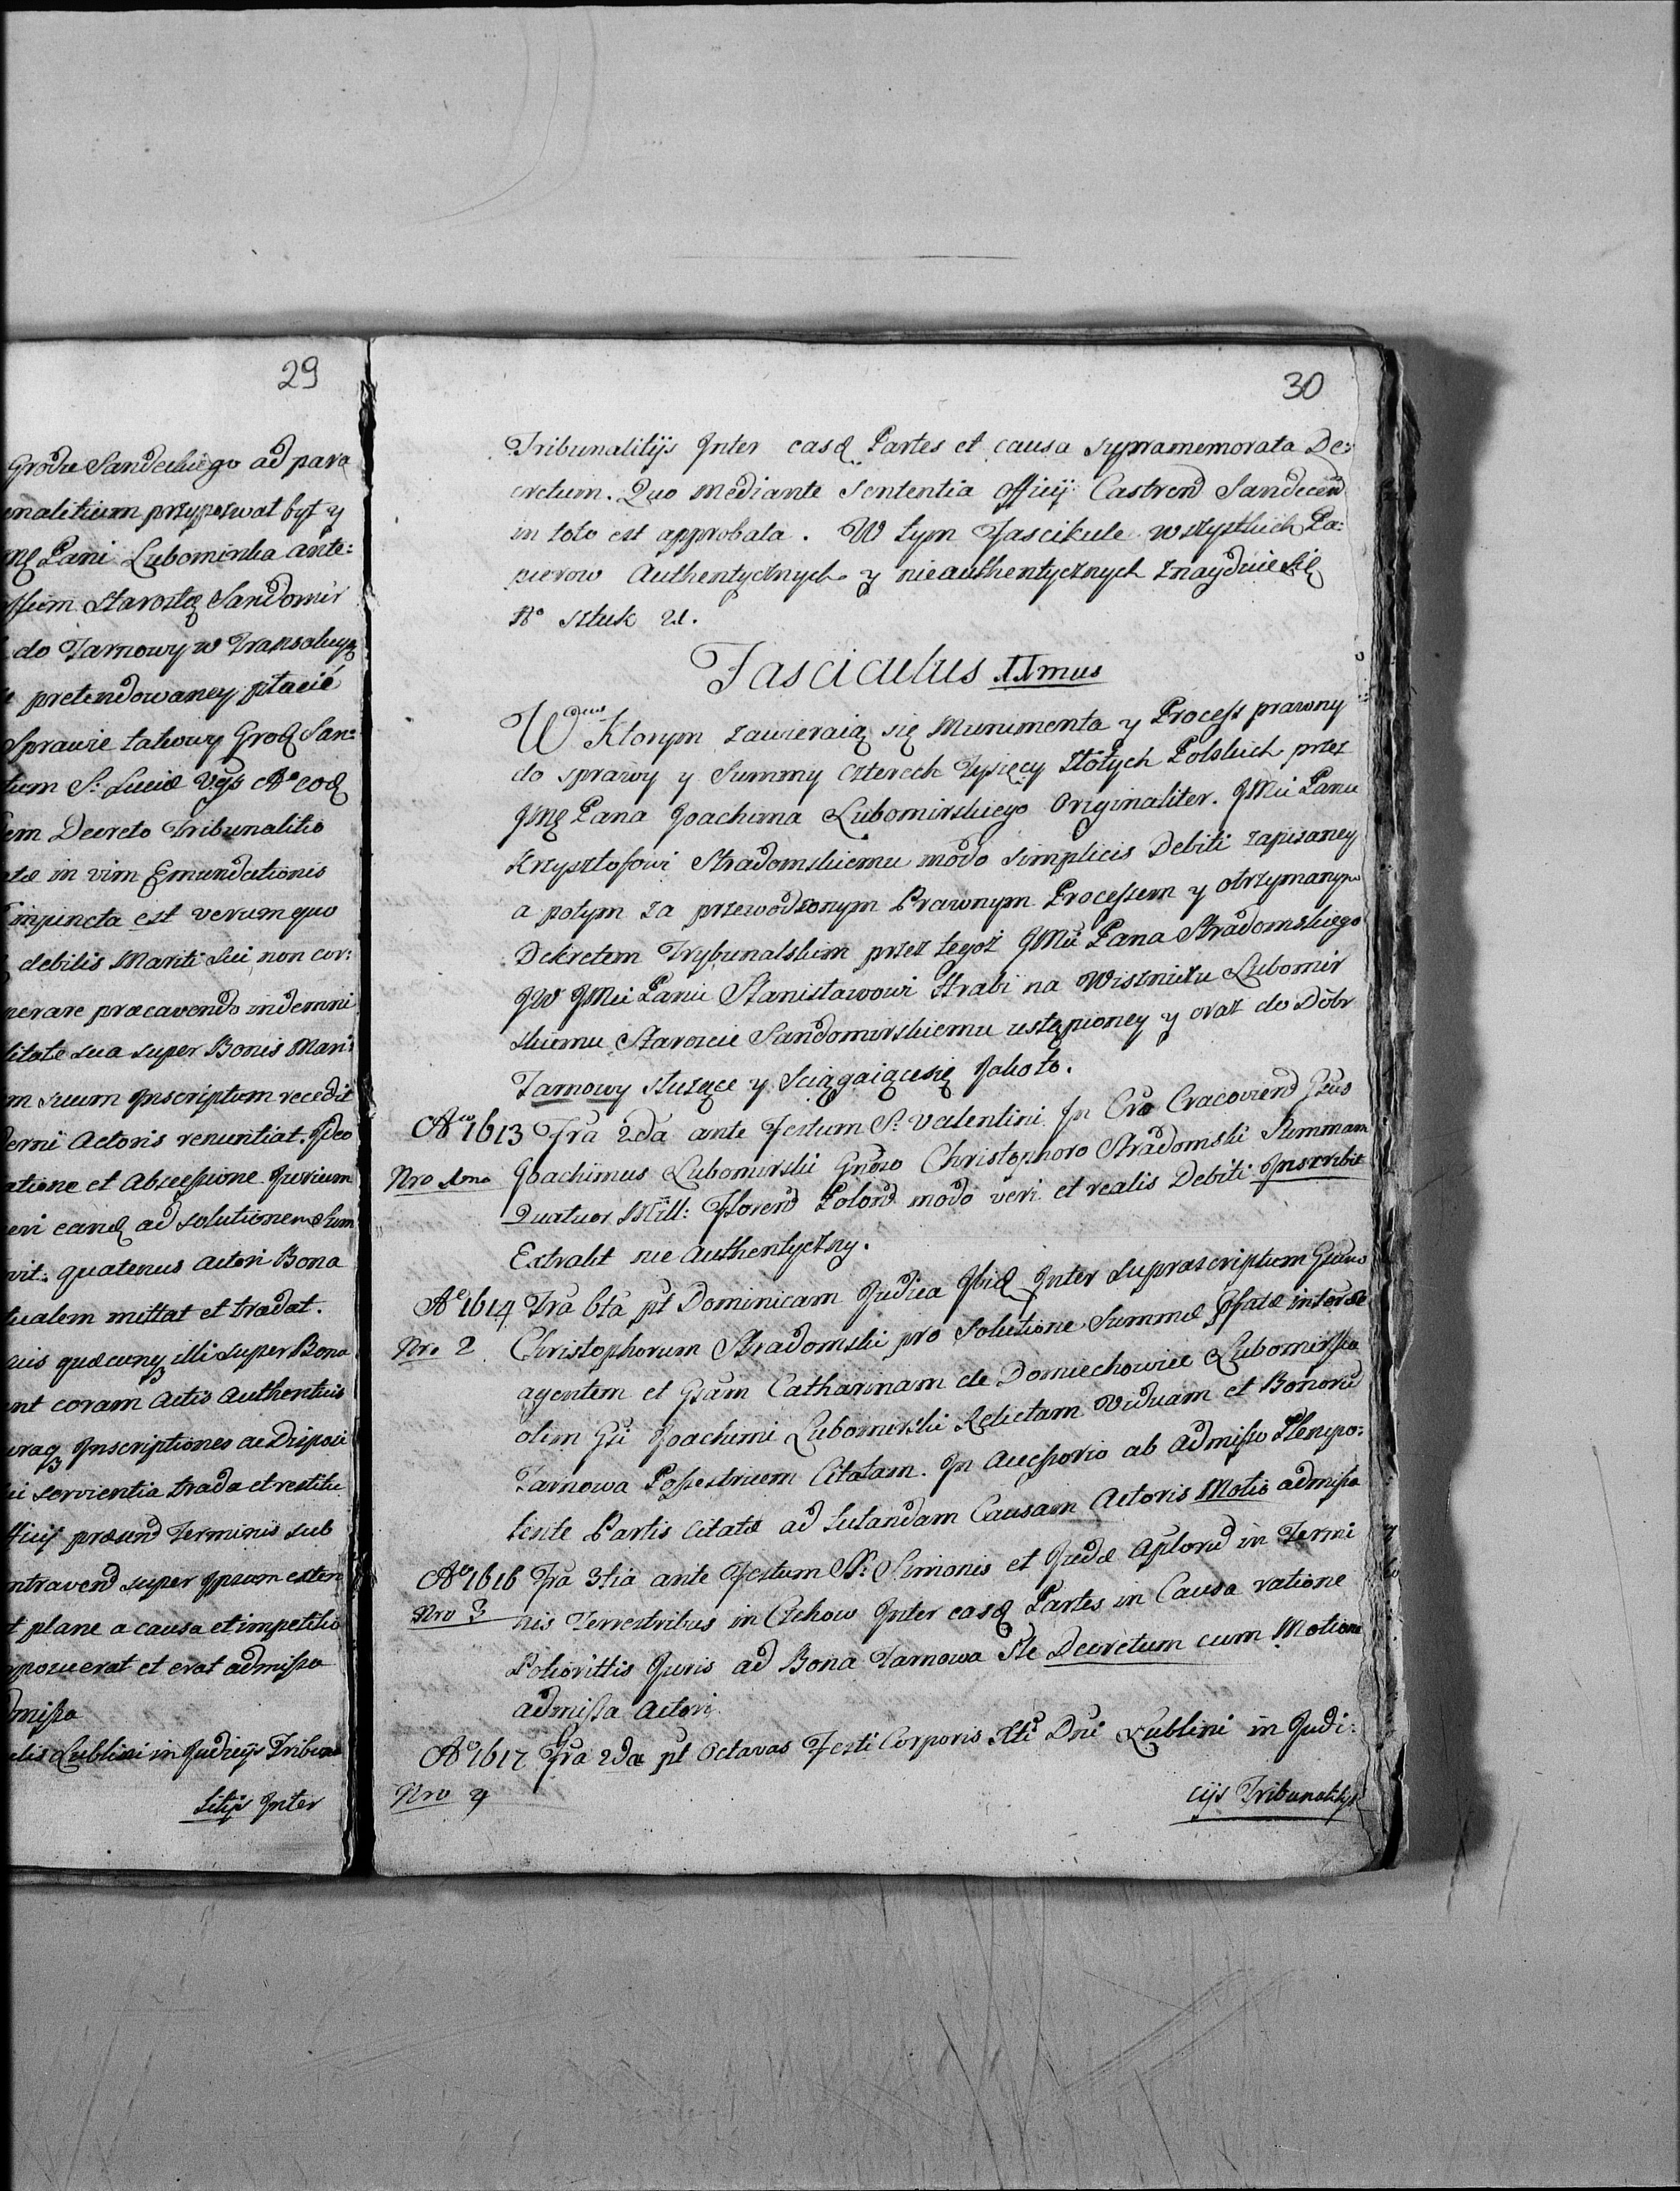 29
Grodu Sandeckiego ad para
onalitium przypozwał był y
mę Pani Lubomirska ante:
skiem Starostę Sandomir
do Tarnowy w Transakcyą
pretendowaney płacić
Sprawie takowy Grod San:
tum S: Luciæ Vgs Aº eod
em Decreto Tribunalitio
atæ in vim Emundationis
impincta est verum quo
debitis Mariti sui non cor:
perare præcavendo indemni
litate sua super Bonis Mari:
m suum Inscriptum recedit
derni Actoris renuntiat. Ideo
atione et Abscessione Jurium
eri eand ad solutionem Sum
vit: quatenus Actori Bona
tualem mittat et tradat.
uis quæcunq illi super Bona
nt coram Actis Authenticis
uraq Inscriptiones ac Disposi
ii servientia trada et restitu
fficij præsend Terminis sub
ntravend super ipsum exten
t plane a causa et impetitio
pozuerat et erat admissa
dmissa
elis Lublini in Judicijs Tribuna
litijs Inter
30
Tribunalitijs Inter easd Partes et causa supramemorata De:
cretum. Quo mediante Sententia Officij Castrend Sandecend
in toto est approbata. W tym Fascikule wszystkich Pa:
pierow Authentycznych y nieauthentycznych znayduie się
Nº sztuk 21.
Fasciculus IImus
W Ktorym zawieraią się Munimenta y Process prawny
do sprawy y Summy czterech Tysięcy Złotych Polskich przez
JMę Pana Joachima Lubomirskiego Originaliter. JMci Panu
Krzysztofowi Stradomskiemu modo simplicis Debiti zapisaney
a potym za przewodzonym Prawnym Processem y otrzymanym
Dekretem Trybunalskim przez tegoż JMci Pana Stradomskiego
JW JMci Panu Stanisławowi Hrabi na Wiszniczu Lubomir
skiemu Staroscie Sandomirskiemu ustąpioney y oraz do Dobr
Tarnowy służące y Sciągaiącesię Jako to.
Aº 1613 Fra 2da ante Festum S: Valentini In Cro Cracoviend Gsus
Nro 1mo Joachimus Lubomirski Gnoso Christophoro Stradomski Summam
Quatuor Mill: Florend Polond modo veri et realis Debiti Inscribit
Extrakt nie Authentyczny.
Aº 1614 Fra 6ta pt Dominicam Judica Ibid Inter supræscriptum Gnsum
Nro 2 Christophorum Stradomski pro Solutione Summæ Pfatæ interse
agentem et Gsam Catharinam de Domiechowice Lubomirska
olim Gsi Joachimi Lubomirski Relictam Viduam et Bonord
Tarnowa Possestricem Citatam. In Accessorio ab admisso Plenipo:
tente Partis Citatæ ad lutandam Causam Actoris Motio admissa
Aº 1616 Fra 3tia ante Festum SS: Simonis et Judæ Aplord in Termi
Nro 3 nis Terrestribus in Czchow Inter easd Partes in Causa ratione
Potiorittis Juris ad Bona Tarnowa Ste Decretum cum Motione
admissa Actori
Aº 1617 Fra 2da pt Octavas Festi Corporis Xti Dni Lublini in Judi:
Nro 4
cijs Tribunalitijs